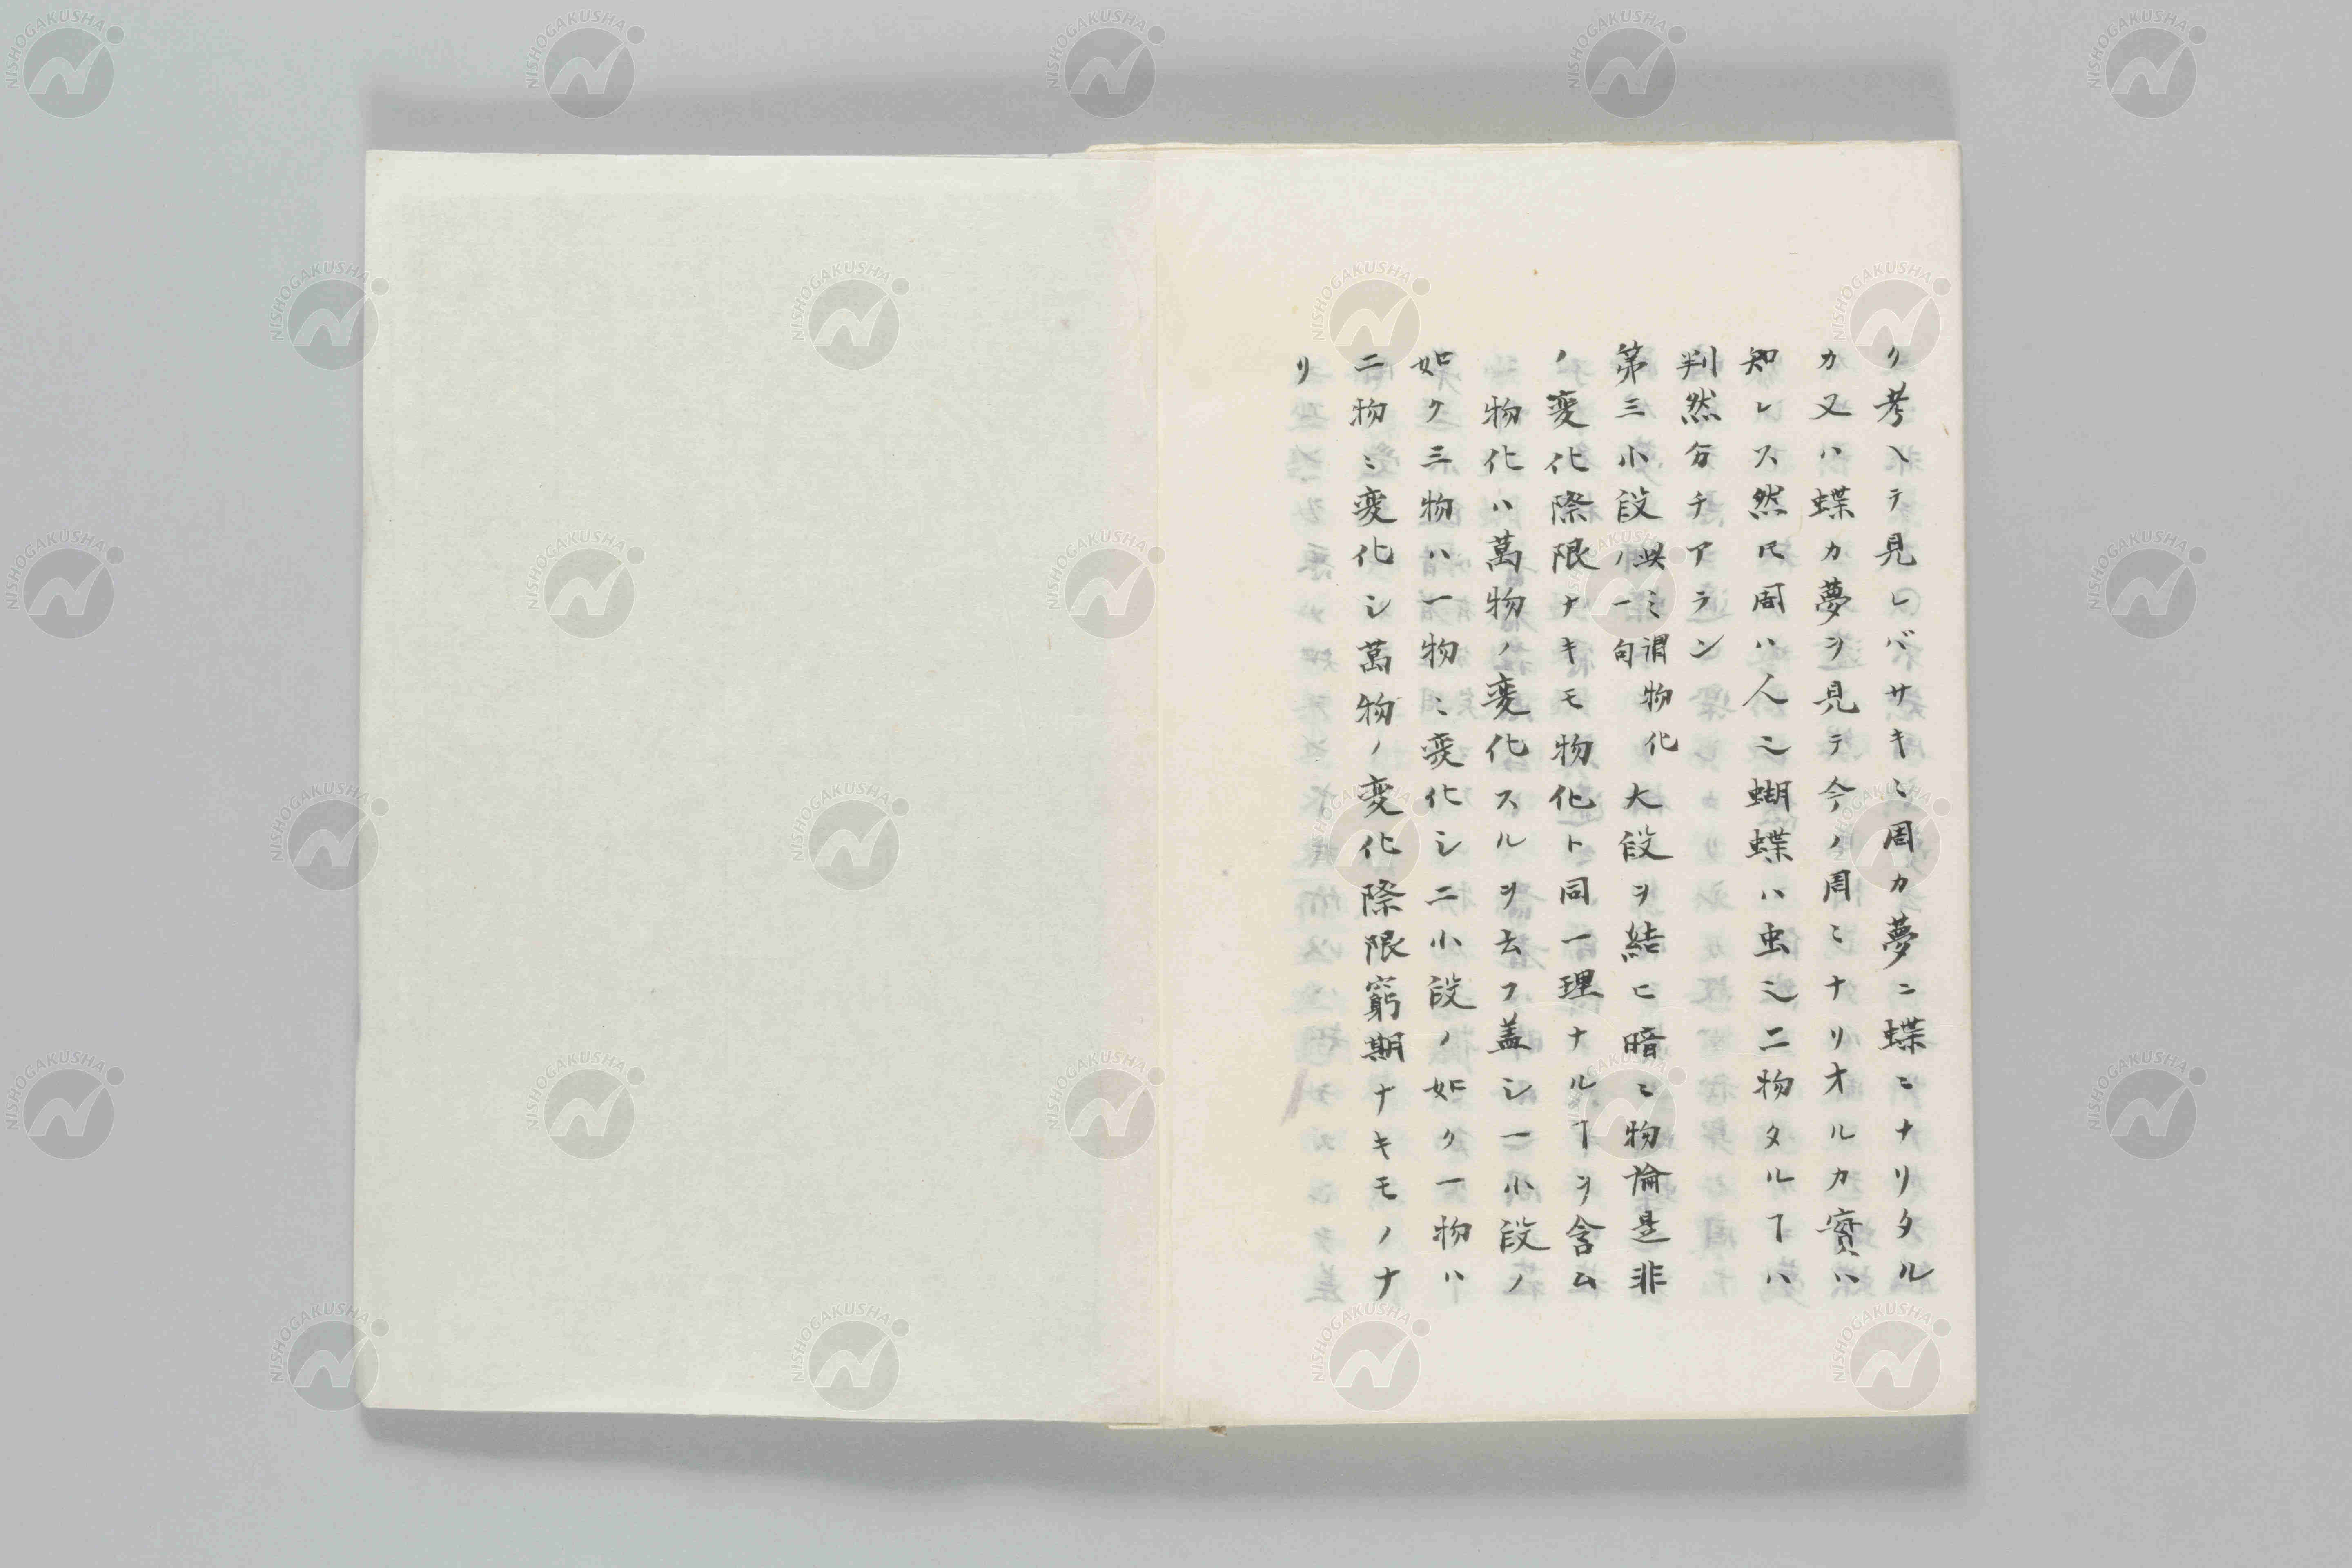 ク考ヘテ見レバサキニ周カ夢ニ蝶ニナリタル
カ又ハ蝶カ夢ヲ見テ今ノ周ニナリオルカ實ハ
知レス然𪜈周ハ人也蝴蝶ハ虫也二物タルヿハ
判然分チアラン
第三小段 此ミ謂物化ノ一句 大段ヲ結ヒ暗ニ物論是非
ノ変化際限ナキモ物化ト同一理ナルヿヲ含ム
物化ハ萬物ノ変化スルヲ云フ蓋シ一小段ノ
如ク三物ハ一物ニ変化シ二小段ノ如ク一物ハ
二物ニ変化シ萬物ノ変化際限窮期ナキモノナ
リ
NISHOGAKUSHA